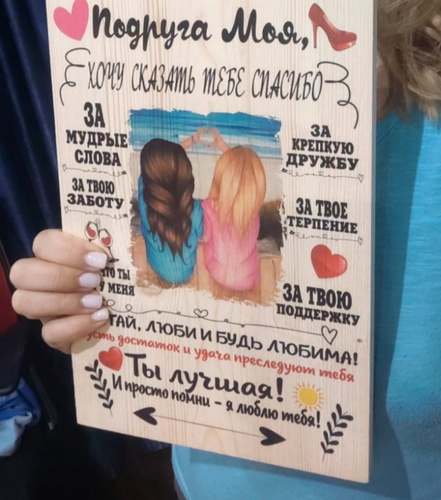 Подруга Моя,
ХОЧУ СКАЗАТЬ ТЕБЕ СПАСИБО
ЗА
МУДРЫЕ
СЛОВА
ЗА ТВОЮ
ЗАБОТУ
ТЫ
У МЕНЯ
ЗА
КРЕПКУЮ
ДРУЖБУ
ЗА ТВОЕ
ТЕРПЕНИЕ
ЗА ТВОЮ
ПОДДЕРЖКУ
ТАЙ, ЛЮБИ И БУДЬ ЛЮБИМА!
усть достаток и удача преследуют тебя
Ты лучшая!
И просто помни - я люблю тебя!